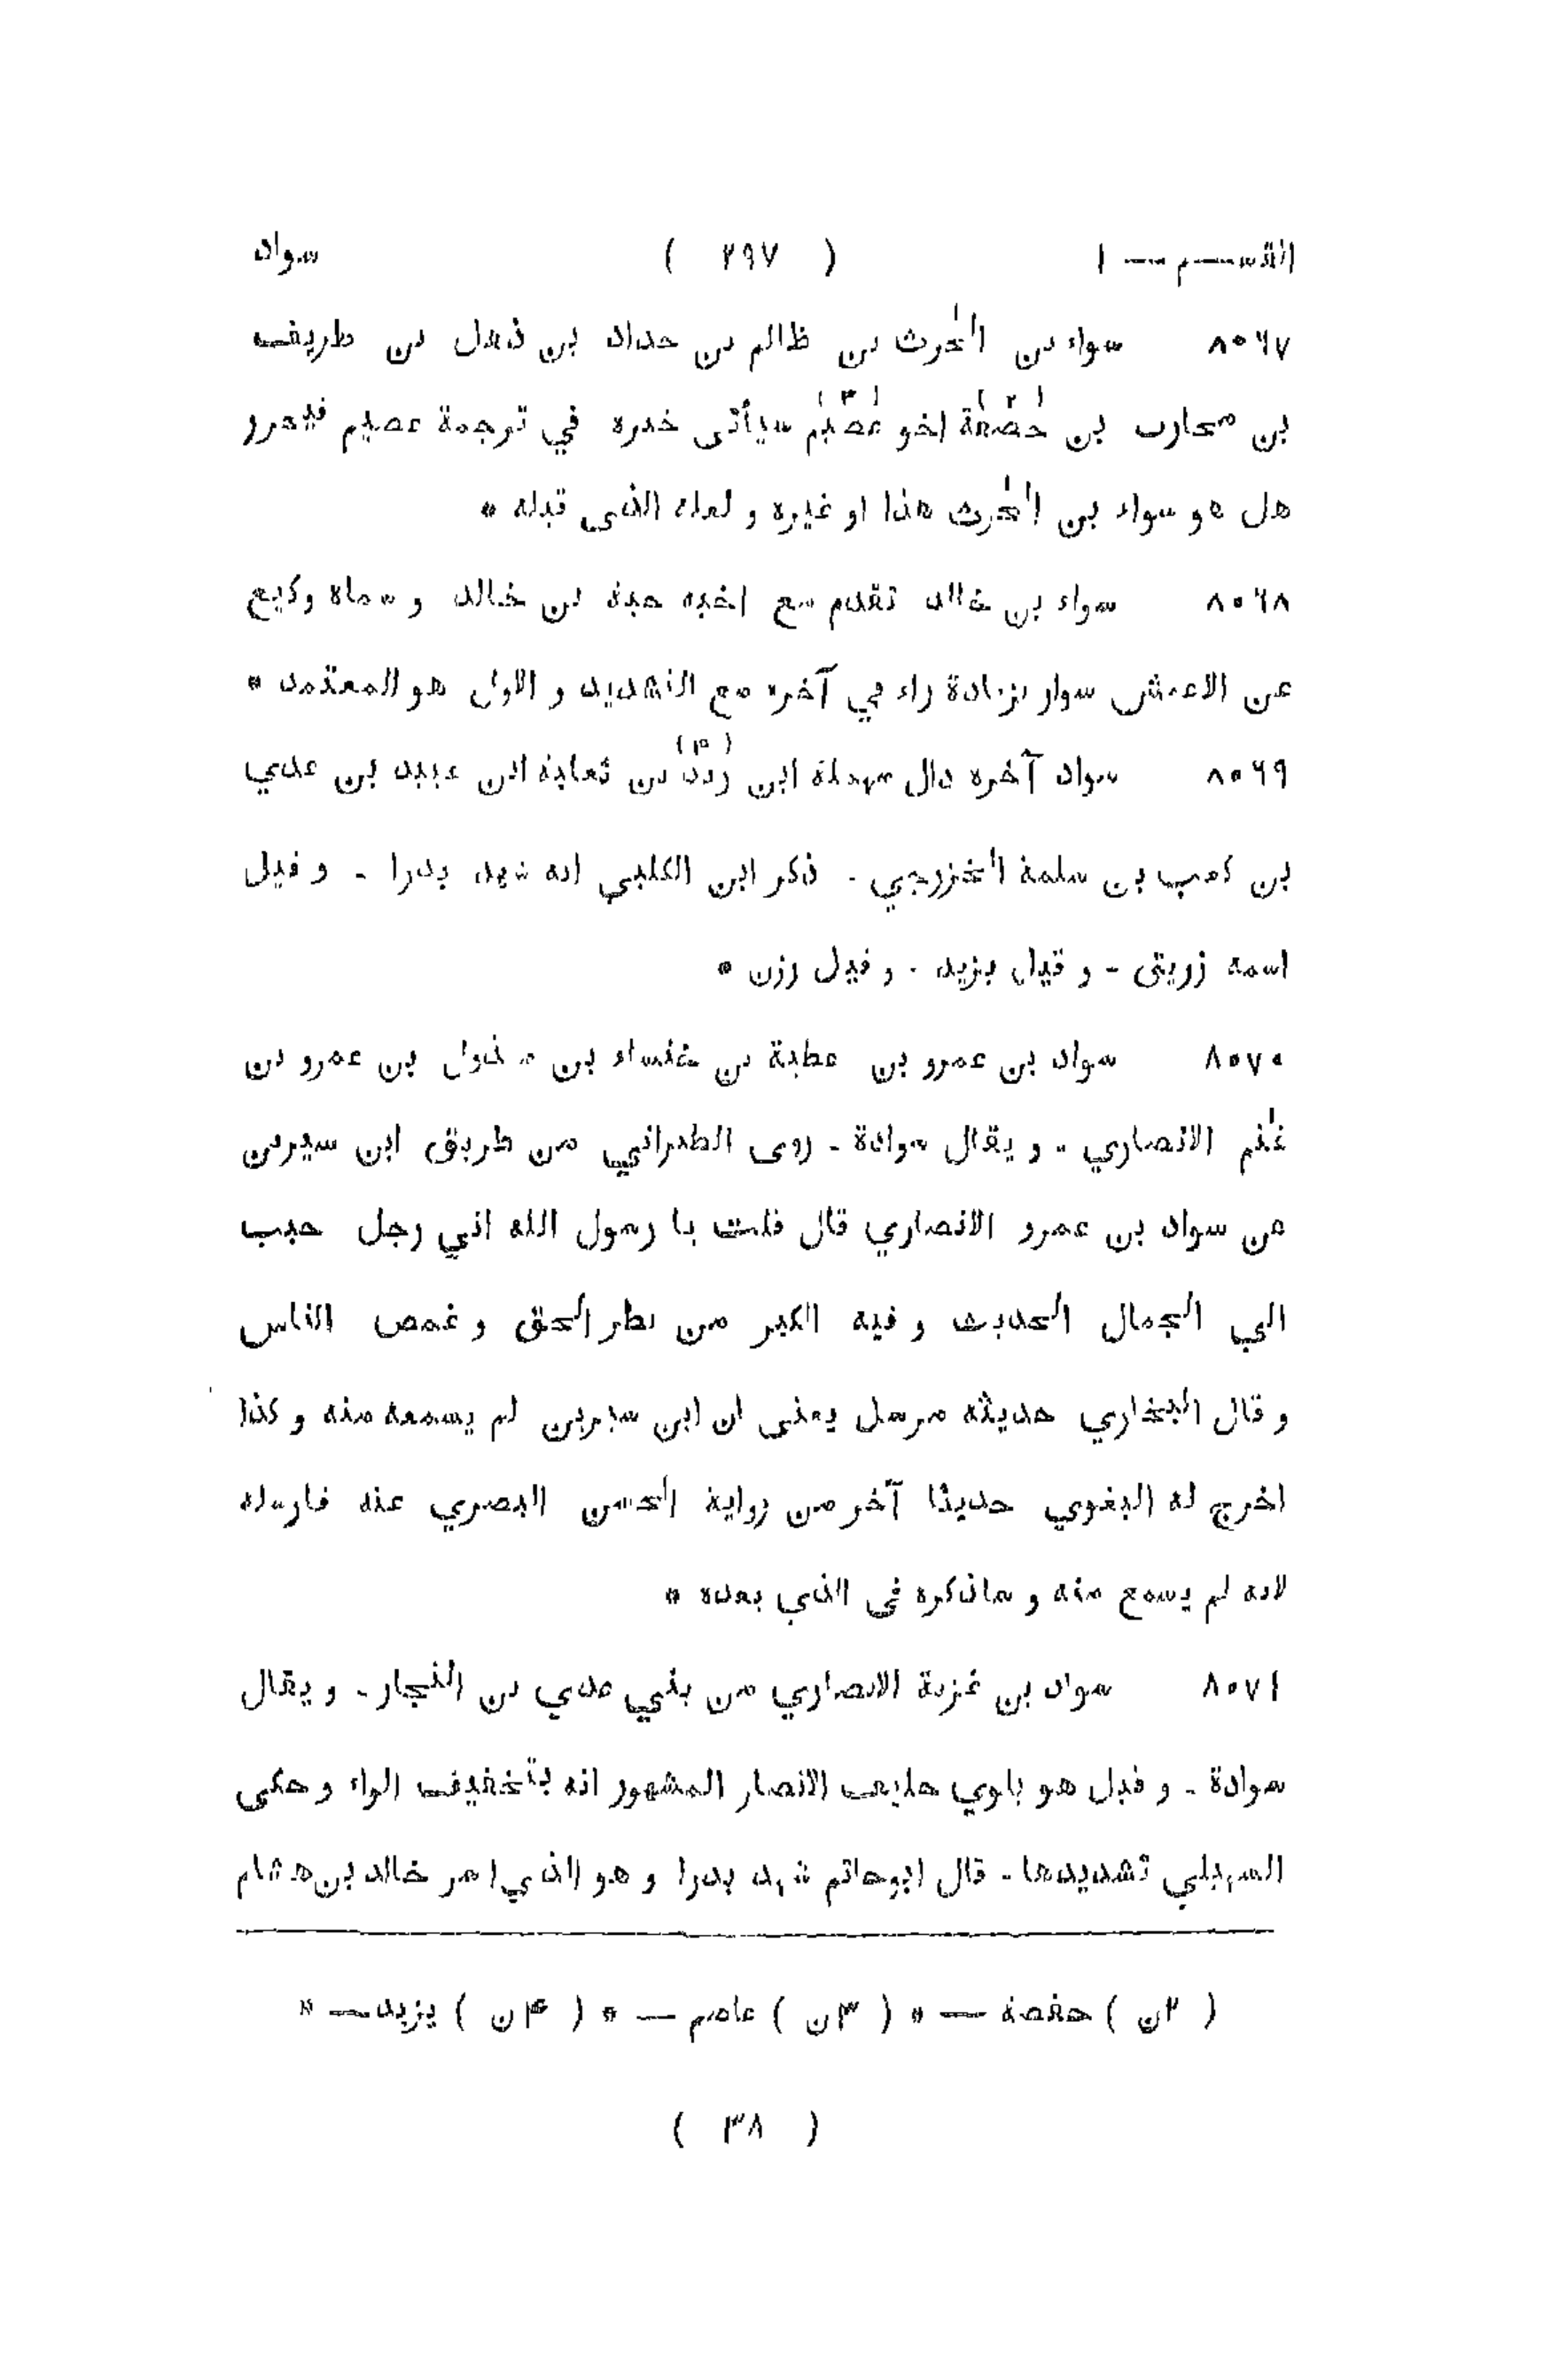 القســـم — ١ ( ٢٩٧ ) سواد
٨٠٦٧ سواء بن الحٰرث بن ظالم بن حداد بن ذهل بن طريف
بن محارب بن خصفة (٢) اخو عصيم (٣) سيأتى خبره في ترجمة عصيم فيحرر
هل هو سواء بن الحٰرث هذا او غيره و لعله الذى قبله *
٨٠٦٨ سواء بن خالد تقدم مع اخيه حبة بن خالد و سماه وكيع
عن الاعمش سوار بزيادة راء في آخره مع التشديد و الاول هو المعتمد *
٨٠٦٩ سواد آخره دال مهملة ابن (۴) بن ثعلبة ابن عبيد بن عدي
بن كعب بن سلمة الخزرجي - ذكر ابن الكلبي انه شهد بدرا - و قيل
اسمه زريق - و قيل يزيد - و قيل رزن *
٨٠٧٠ سواد بن عمرو بن عطية بن خنساء بن مبذول بن عمرو بن
غنم الانصاري - و يقال سوادة - روى الطبراني من طريق ابن سيرين
عن سواد بن عمرو الانصاري قال قلت يا رسول الله اني رجل حبب
الي الجمال الحديث و فيه الكبر من بطر الحق و غمص الناس
و قال البخاري حديثه مرسل يعنى ان ابن سيرين لم يسمعه منه و كذا
اخرج له البغوي حديثا آخر من رواية الحسن البصري عنه فارسله
لانه لم يسمع منه و ساذكره فى الذي بعده *
٨٠٧١ سواد بن غزية الانصاري من بني عدي بن النجار - و يقال
سوادة - و قيل هو بلوي حليف الانصار المشهور انه بتخفيف الواو و حكى
السهيلي تشديدها - قال ابوحاتم شهد بدرا و هو الذي اسر خالد بن هشام
( ٢ن ) حفصة — * ( ٣ن ) عاصم — * ( ۴ن ) يزيد — *
( ٣٨ )